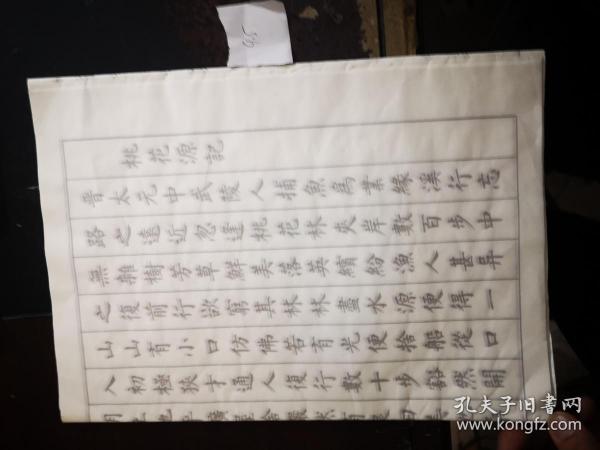 桃花源記
晉太元中武陵人捕魚爲業緣溪行忘
路之遠近忽逢桃花林夾岸數百步中
無雜樹芳草鮮美落英繽紛漁人甚異
之復前行欲窮其林林盡水源便得一
山山有小口仿佛若有光便捨船從口
入初極狹才通人復行數十步豁然開
孔夫子旧書网
www.kongfz.com